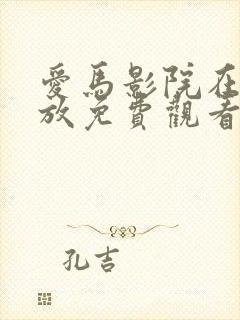 愛馬影院在
放免費觀看
孔吉